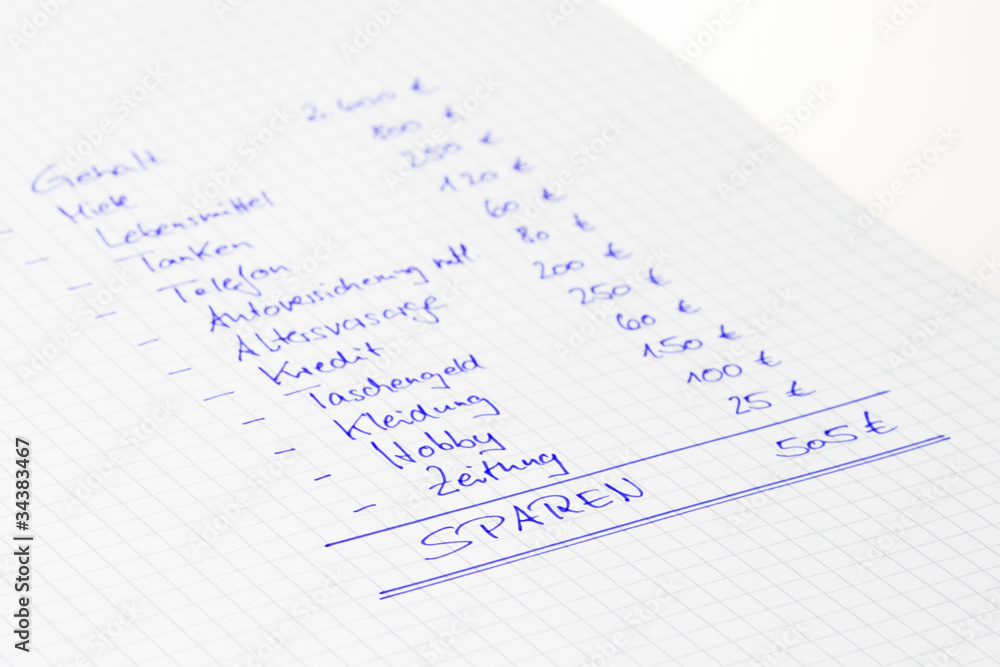 Gehalt 2.600 €
- Miete 800 €
- Lebensmittel 250 €
- Tanken 120 €
- Telefon 60 €
- Autoversicherung mtl. 80 €
- Altersvorsorge 200 €
- Kredit 250 €
- Taschengeld 60 €
- Kleidung 150 €
- Hobby 100 €
- Zeitung 25 €
SPAREN 505 €
Adobe Stock | #34383467